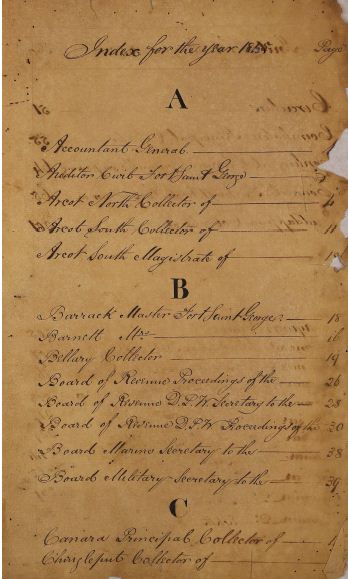 Index for the year Page
A
Accountant General
Auditor Civil Fort Saint George
Arcot North Collector of 4
Arcot South Collector of 11
Arcot South Magistrate of
B
Barrack Master Fort Saint George 18
Barnett Mrs 16
Bellary Collector 19
Board of Revenue Proceedings of the 26
Board of Revenue D.P.W. Secretary to the 28
Board of Revenue D.P.W. Proceedings of the 30
Board Marine Secretary to the 38
Board Military Secretary to the 39
C
Canara Principal Collector of
Chingleput Collector of